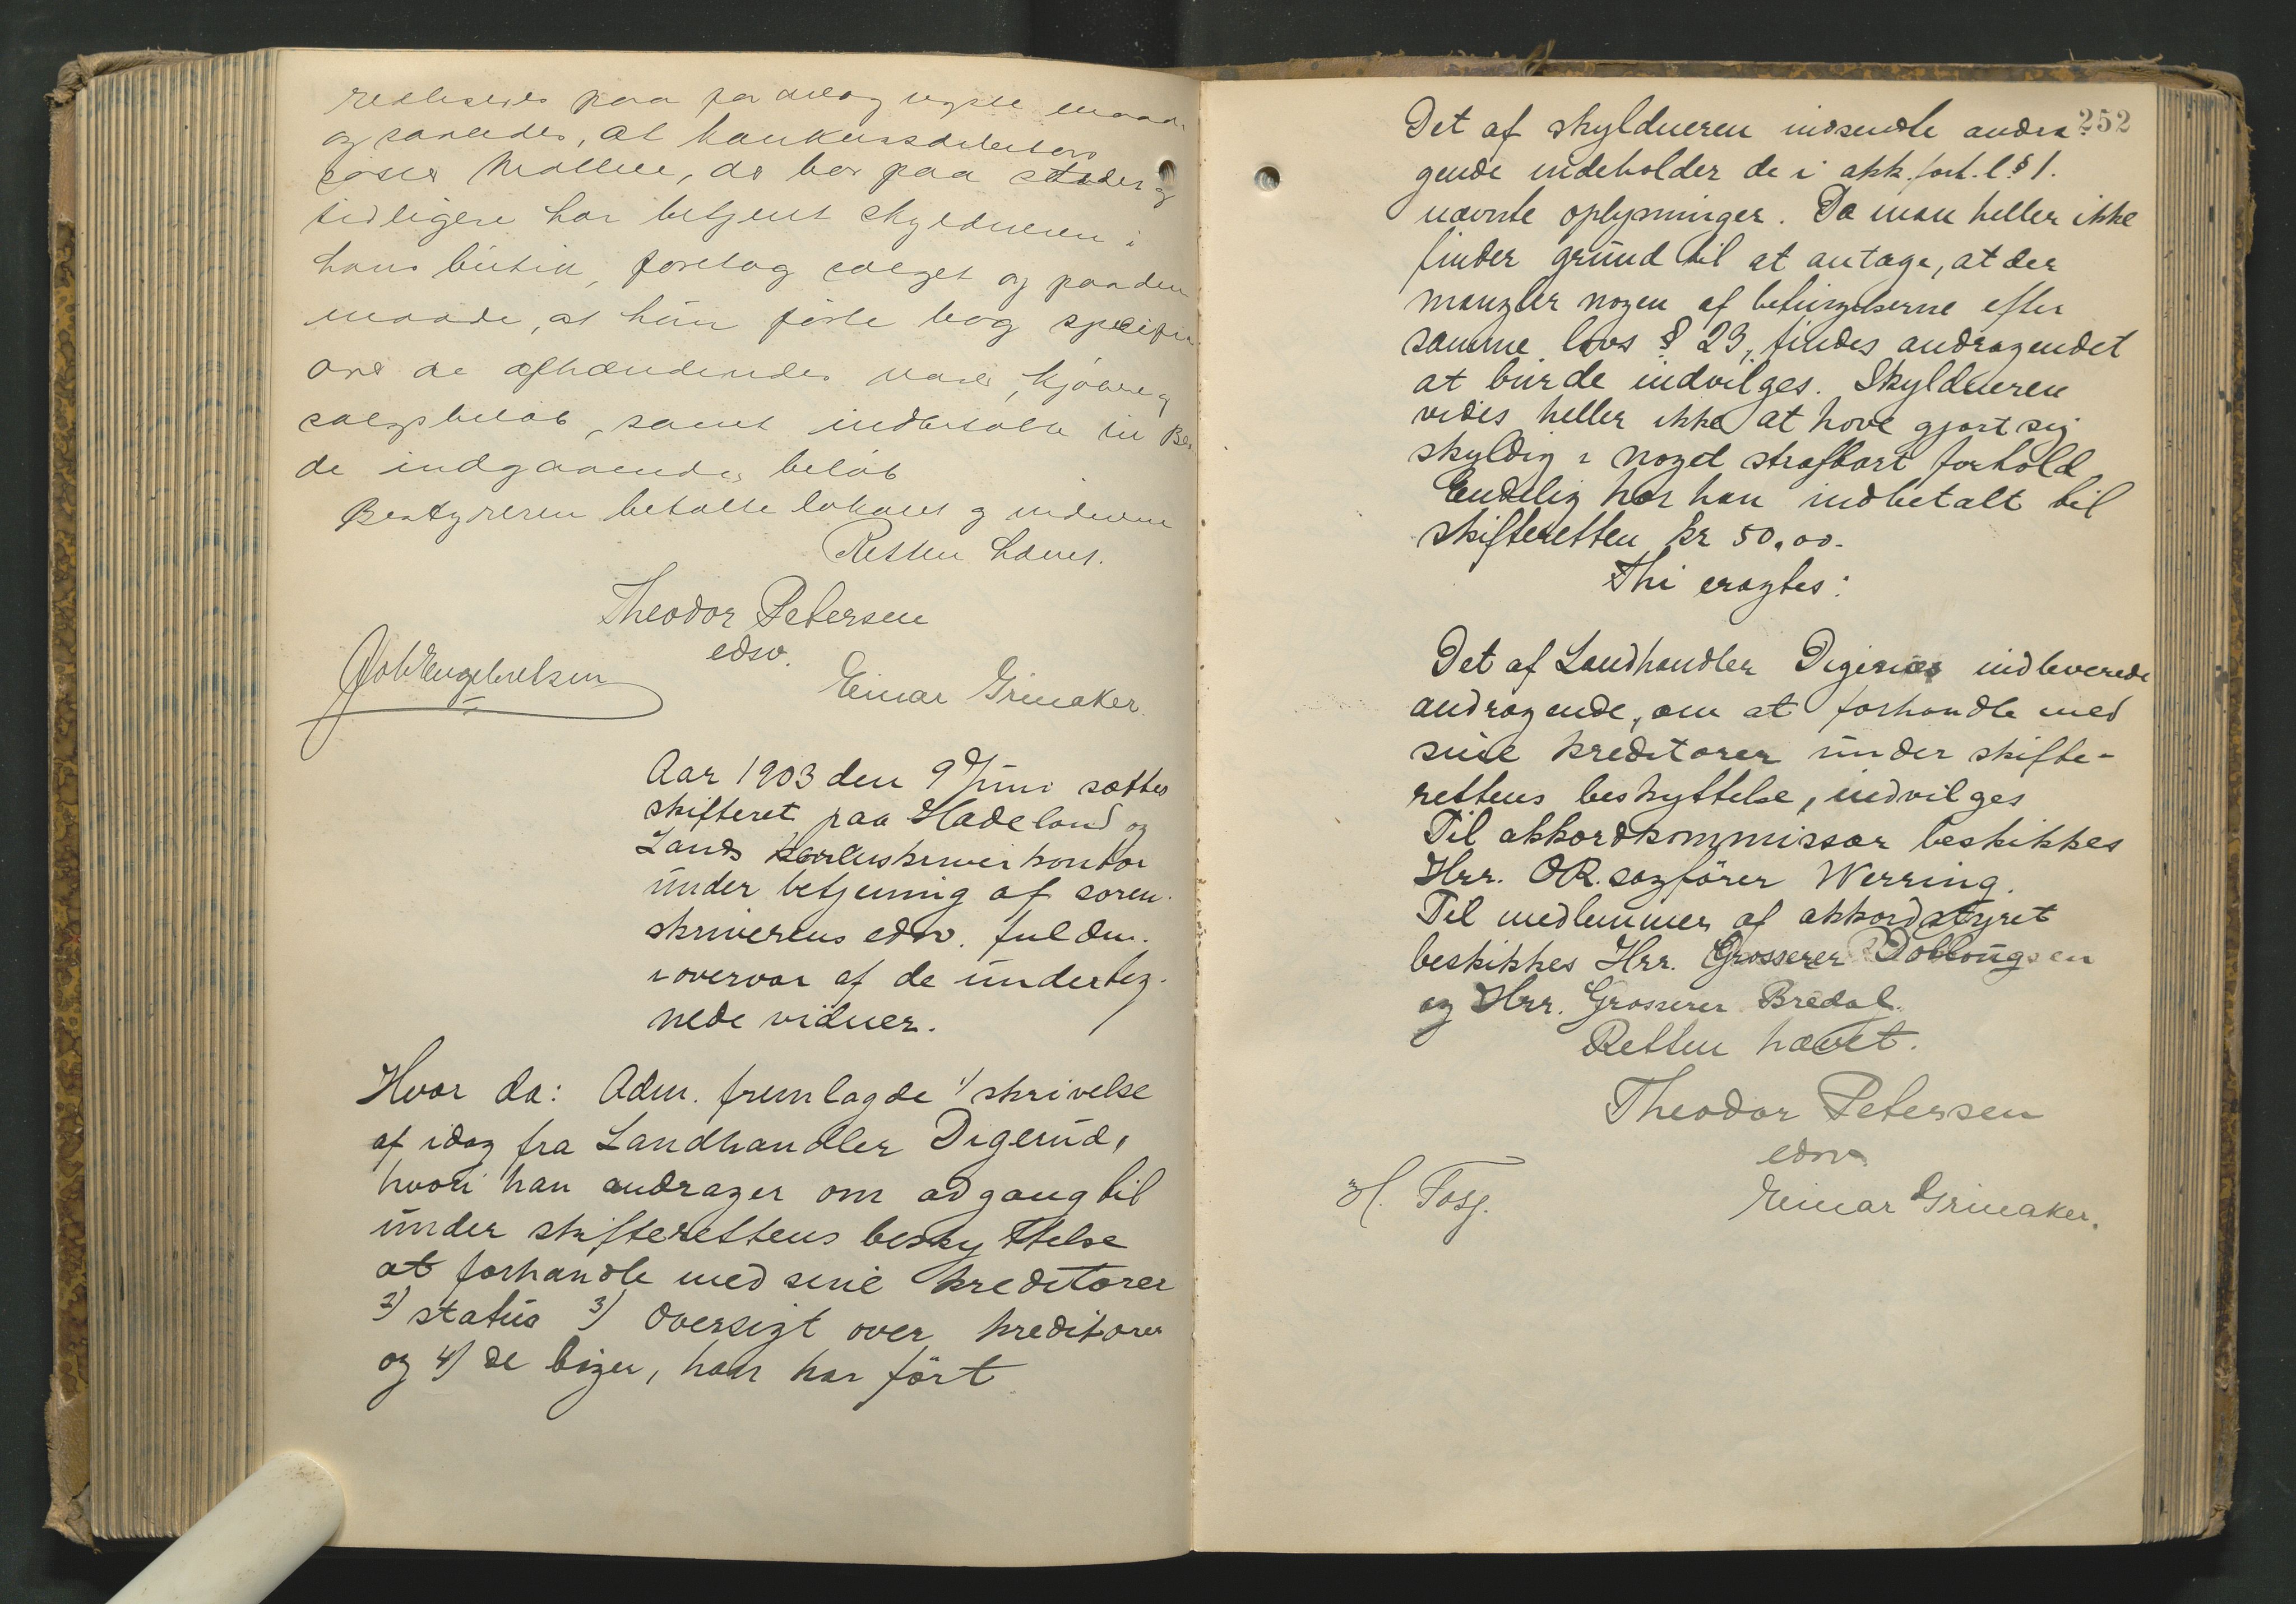 realiseres paa fordelagtigste maade
og saaledes, at konkursdebitors
søster Mathea, der bor paa stedet og
tidligere har betjent skyldneren i
hans butik, foretog salget og paa den
maade, at hun førte bog specifi
over de afhændendes varer, kjøbere og
salgsbeløb, samt indbetalte til Bes
de indgaaende beløb
Bestyreren betalte lokalet og
Retten hævet.
Theodor Petersen
edsv.
Engebretsen
Einar Grinaker
Aar 1903 den 9 Juni sættes
skifteret paa Hadeland og
Lands sorenskriverkontor
under betjening af soren-
skriverens edsv. fuldm.
i overvær af de underteg-
nede vidner.
Hvor da: Adm. fremlagde 1) skrivelse
af idag fra Landhandler Digerud,
hvori han andrager om adgang til
under skifterettens beskyttelse
at forhandle med sine kreditorer
2) status 3) Oversigt over kreditorer
og 4) de bøger, han har ført
252
Det af skyldneren indsendte andra-
gende indeholder de i akk.forh.l. § 1.
nævnte oplysninger. Da man heller ikke
finder grund til at antage, at der
mangler nogen af betingelserne efter
samme lovs § 23, findes andragendet
at burde indvilges. Skyldneren
vides heller ikke at have gjort sig
skyldig i noget strafbart forhold
Endelig har han indbetalt til
skifteretten kr 50,00.
Thi eragtes:
Det af Landhandler indleverede
andragende, om at forhandle med
sine kreditorer under skifte-
rettens beskyttelse, indvilges
Til akkordkommissær beskikkes
Hrr. OR.sagfører Werring.
Til medlemmer af akkordstyret
beskikkes Hrr. Grosserer Doblougsen
og Hrr. Grosserer Bredal.
Retten hævet.
Theodor Petersen
edsv
H. Foss.
Einar Grinaker.